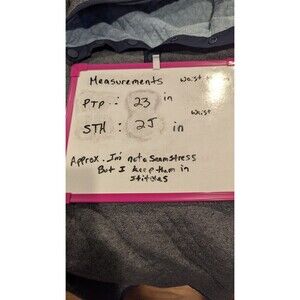 Measurements
PTP : 23 in
Waist
STH : 25 in
Approx. Im not a Seamstress
But I keep them in
stitches